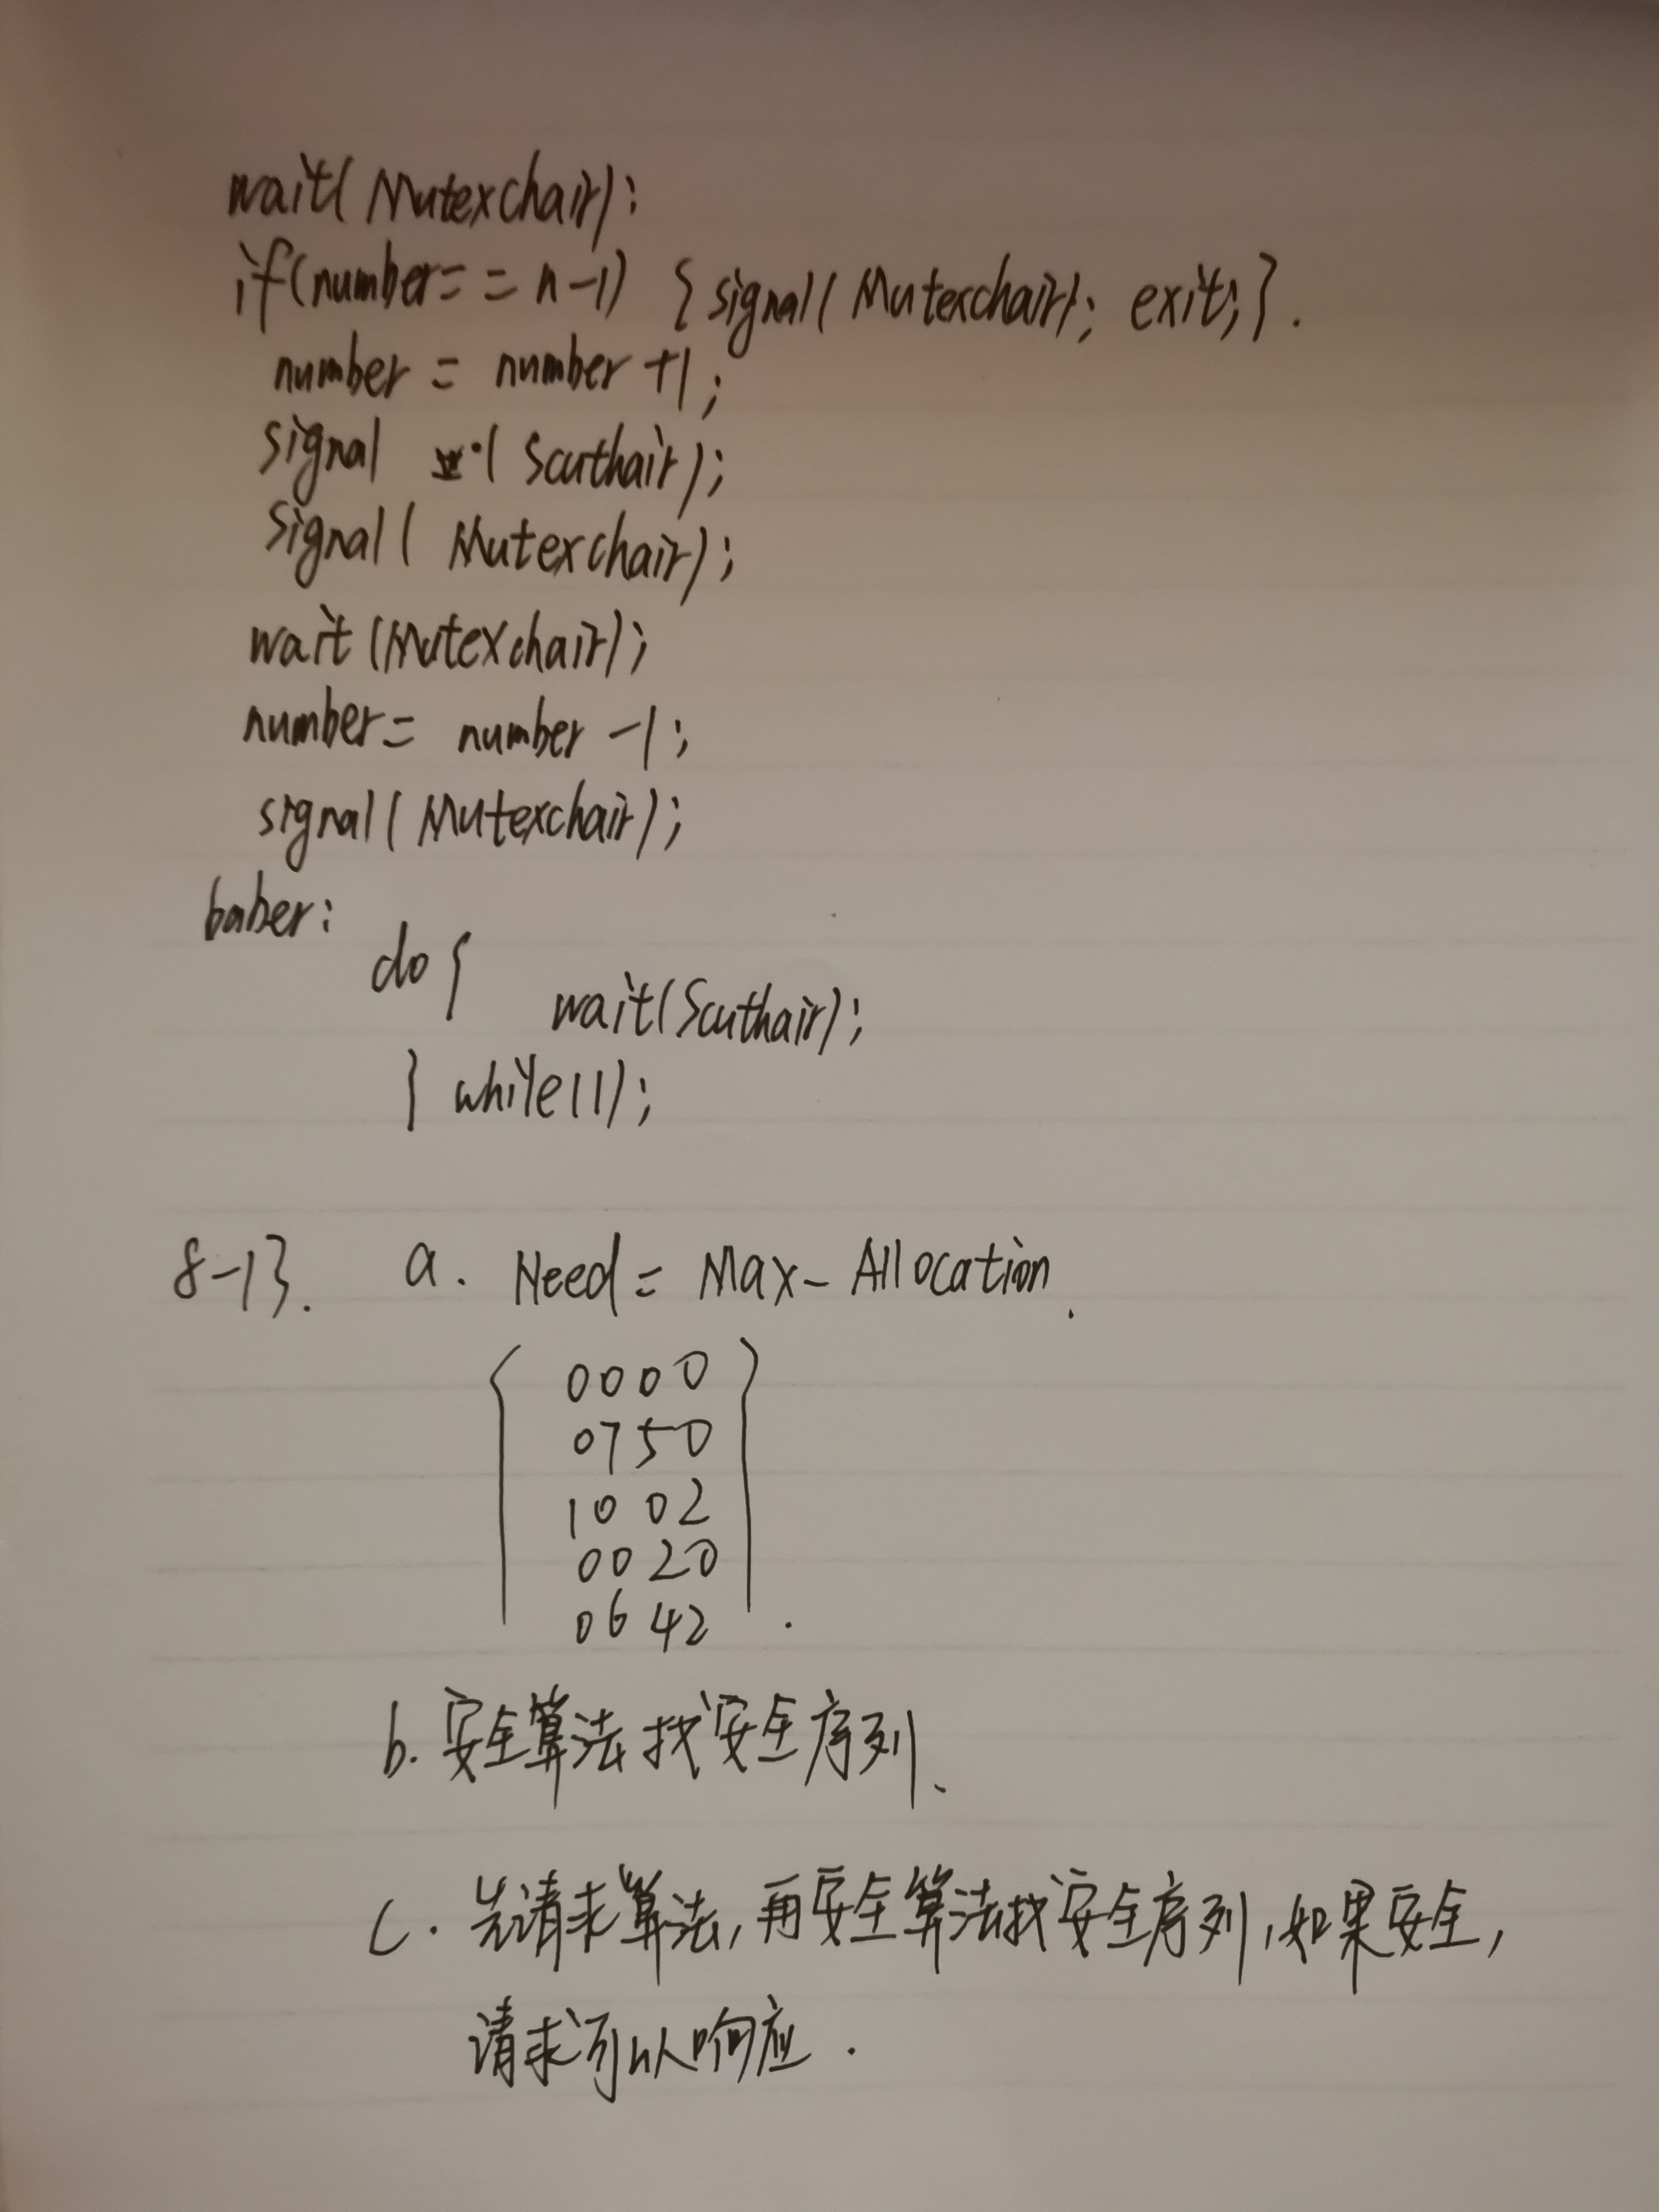 wait(Mutexchair);
if(number==n-1) {signal(Mutexchair); exit;}.
number = number +1;
signal (Scuthair);
signal(Mutexchair);
wait(Mutexchair);
number= number -1;
signal(Mutexchair);
baber:
do{
wait(Scuthair);
} while(1);
8-13. a. Need= Max- Allocation.
0000
0750
1002
0020
0642.
b. 安全算法找安全序列、
c. 先请求算法,再安全算法找安全序列,如果安全,
请求可以响应.